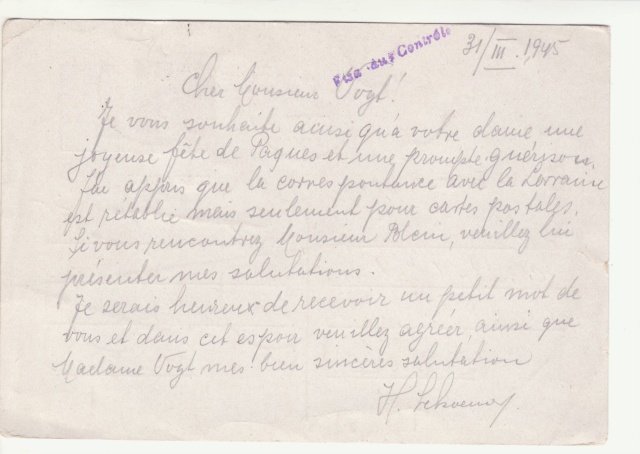 31/III. 1945
Cher Monsieur Vogt!
Je vous souhaite ainsi qu'à votre dame une
joyeuse fête de Paques et une prompte guérison.
J'ai appris que la correspontance avec la Lorraine
est rétablie mais seulement pour cartes postales.
Si vous rencontrez Monsieur Blein, veuillez lui
présenter mes salutations.
Je serais heureux de recevoir un petit mot de
vous et dans cet espoir veuillez agréer, ainsi que
Madame Vogt mes bien sincères salutation
H.